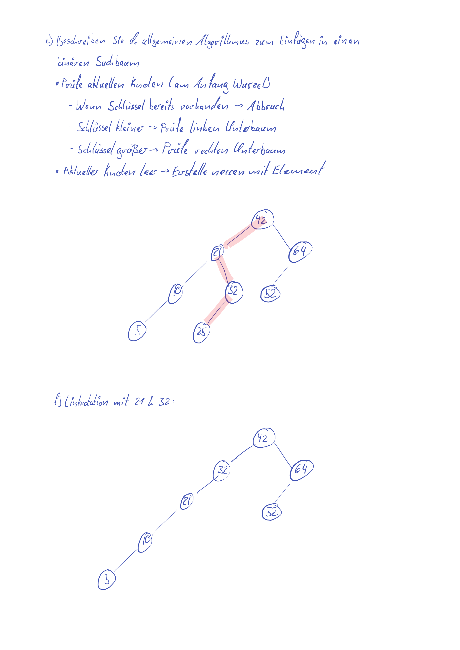 Beschreiben Sie den allgemeinen Algorithmus zum Einfügen in einen
binären Suchbaum
• Prüfe aktuellen Knoten (am Anfang Wurzel)
- Wenn Schlüssel bereits vorhanden → Abbruch
Schlüssel kleiner → Prüfe linken Unterbaum
- Schlüssel größer → Prüfe rechten Unterbaum
• Aktueller Knoten leer → Erstelle neuen mit Element
42
21
64
10
32
52
5
25
f) Linksrotation mit 21 & 32:
42
32
64
21
52
10
5